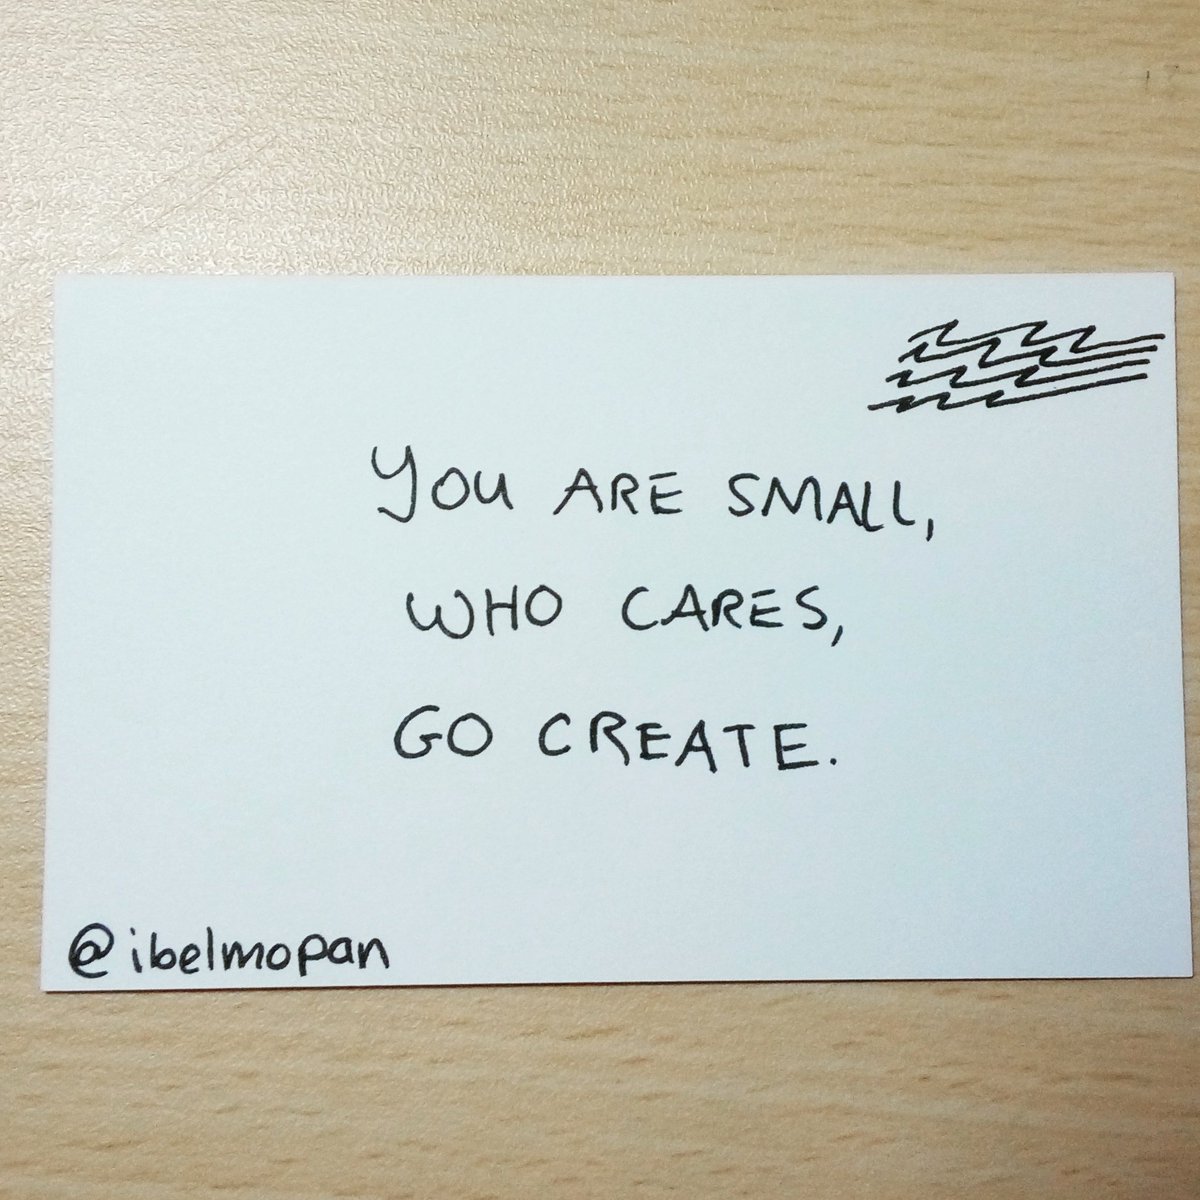 YOU ARE SMALL,
WHO CARES,
GO CREATE.
@ibelmopan